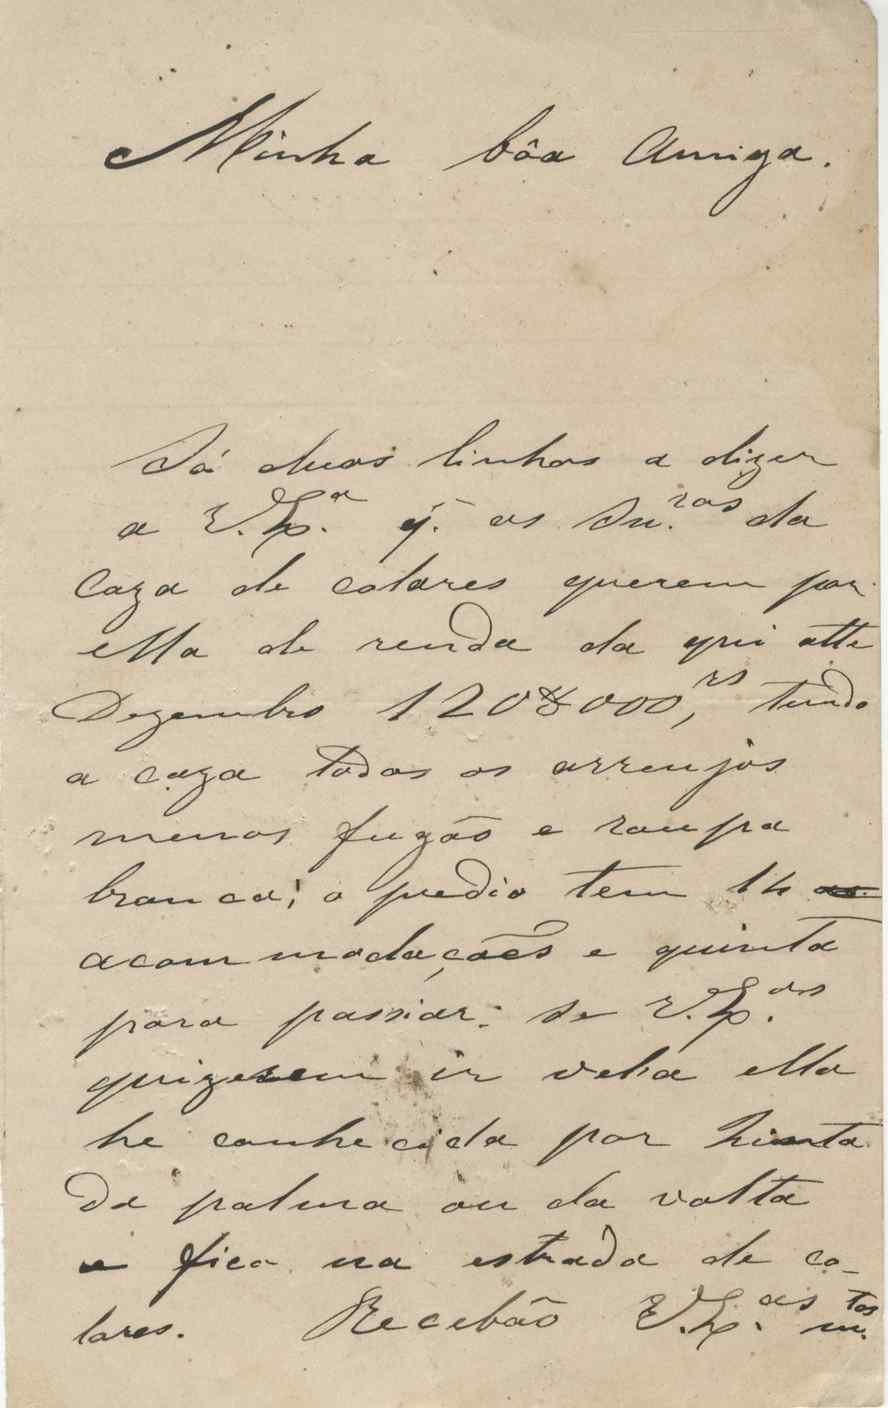 Minha bôa Amiga.
Só duas linhas a dizer
a V. Ex.ª q. os Sn.ras da
Caza de colares querem por
ella de renda da qui atte
Dezembro 120$000,rs tendo
a caza todos os arrenjos
menos fugão e roupa
branca; o predio tem 14
acommodações e quinta
para passiar: se V. Ex.as
quizerem ir vela ella
he conhecida por Quinta
da palma ou da volta
e fica na estrada de co-
lares. Recebão V. Ex.as m.tos